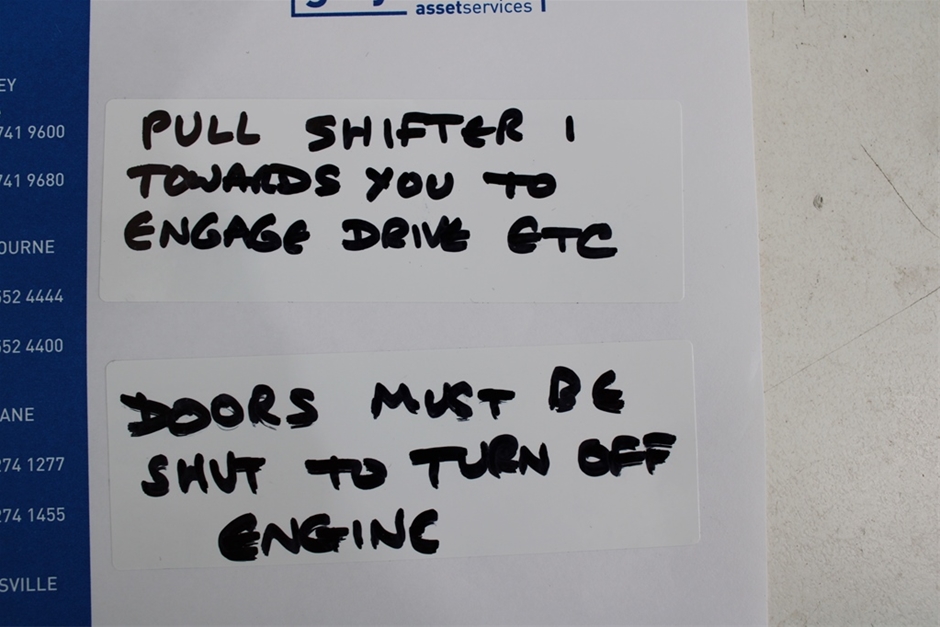 assetservices
PULL SHIFTER
TOWARDS YOU TO
ENGAGE DRIVE ETC
DOORS MUST BE
SHUT TO TURN OFF
ENGINE
EY
741 9600
741 9680
OURNE
552 4444
552 4400
ANE
274 1277
274 1455
SVILLE